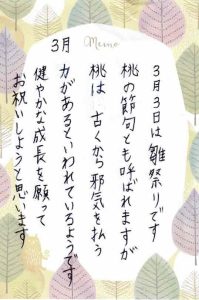 Memo
3月
3月3日は雛祭りです
桃の節句とも呼ばれますが
桃は 古くから邪気を払う
力があるといわれているようです
健やかな成長を願って
お祝いしようと思います